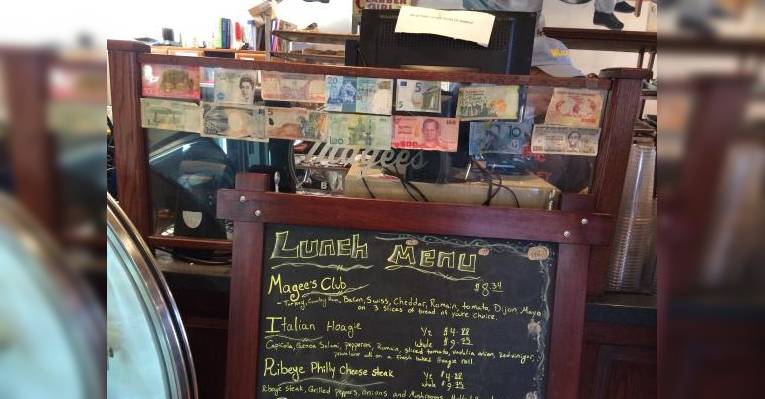 5
Magees
Lunch Menu
Magee's Club $8.34
- Turkey, Country Ham, Bacon, Swiss, Cheddar, Romain, tomato, Dijon Mayo
on 3 slices of bread of your choice.
Italian Hoagie ½ $4.88
whole $9.25
Capicola, Genoa Salami, pepperoni, Romain, sliced tomato, vadalia onion, red vinegar,
provalone all on a fresh baked Hoagie roll
Ribeye Philly Cheese steak ½ $4.88
whole $9.25
Ribeye Steak, Grilled peppers, onions and Mushrooms,